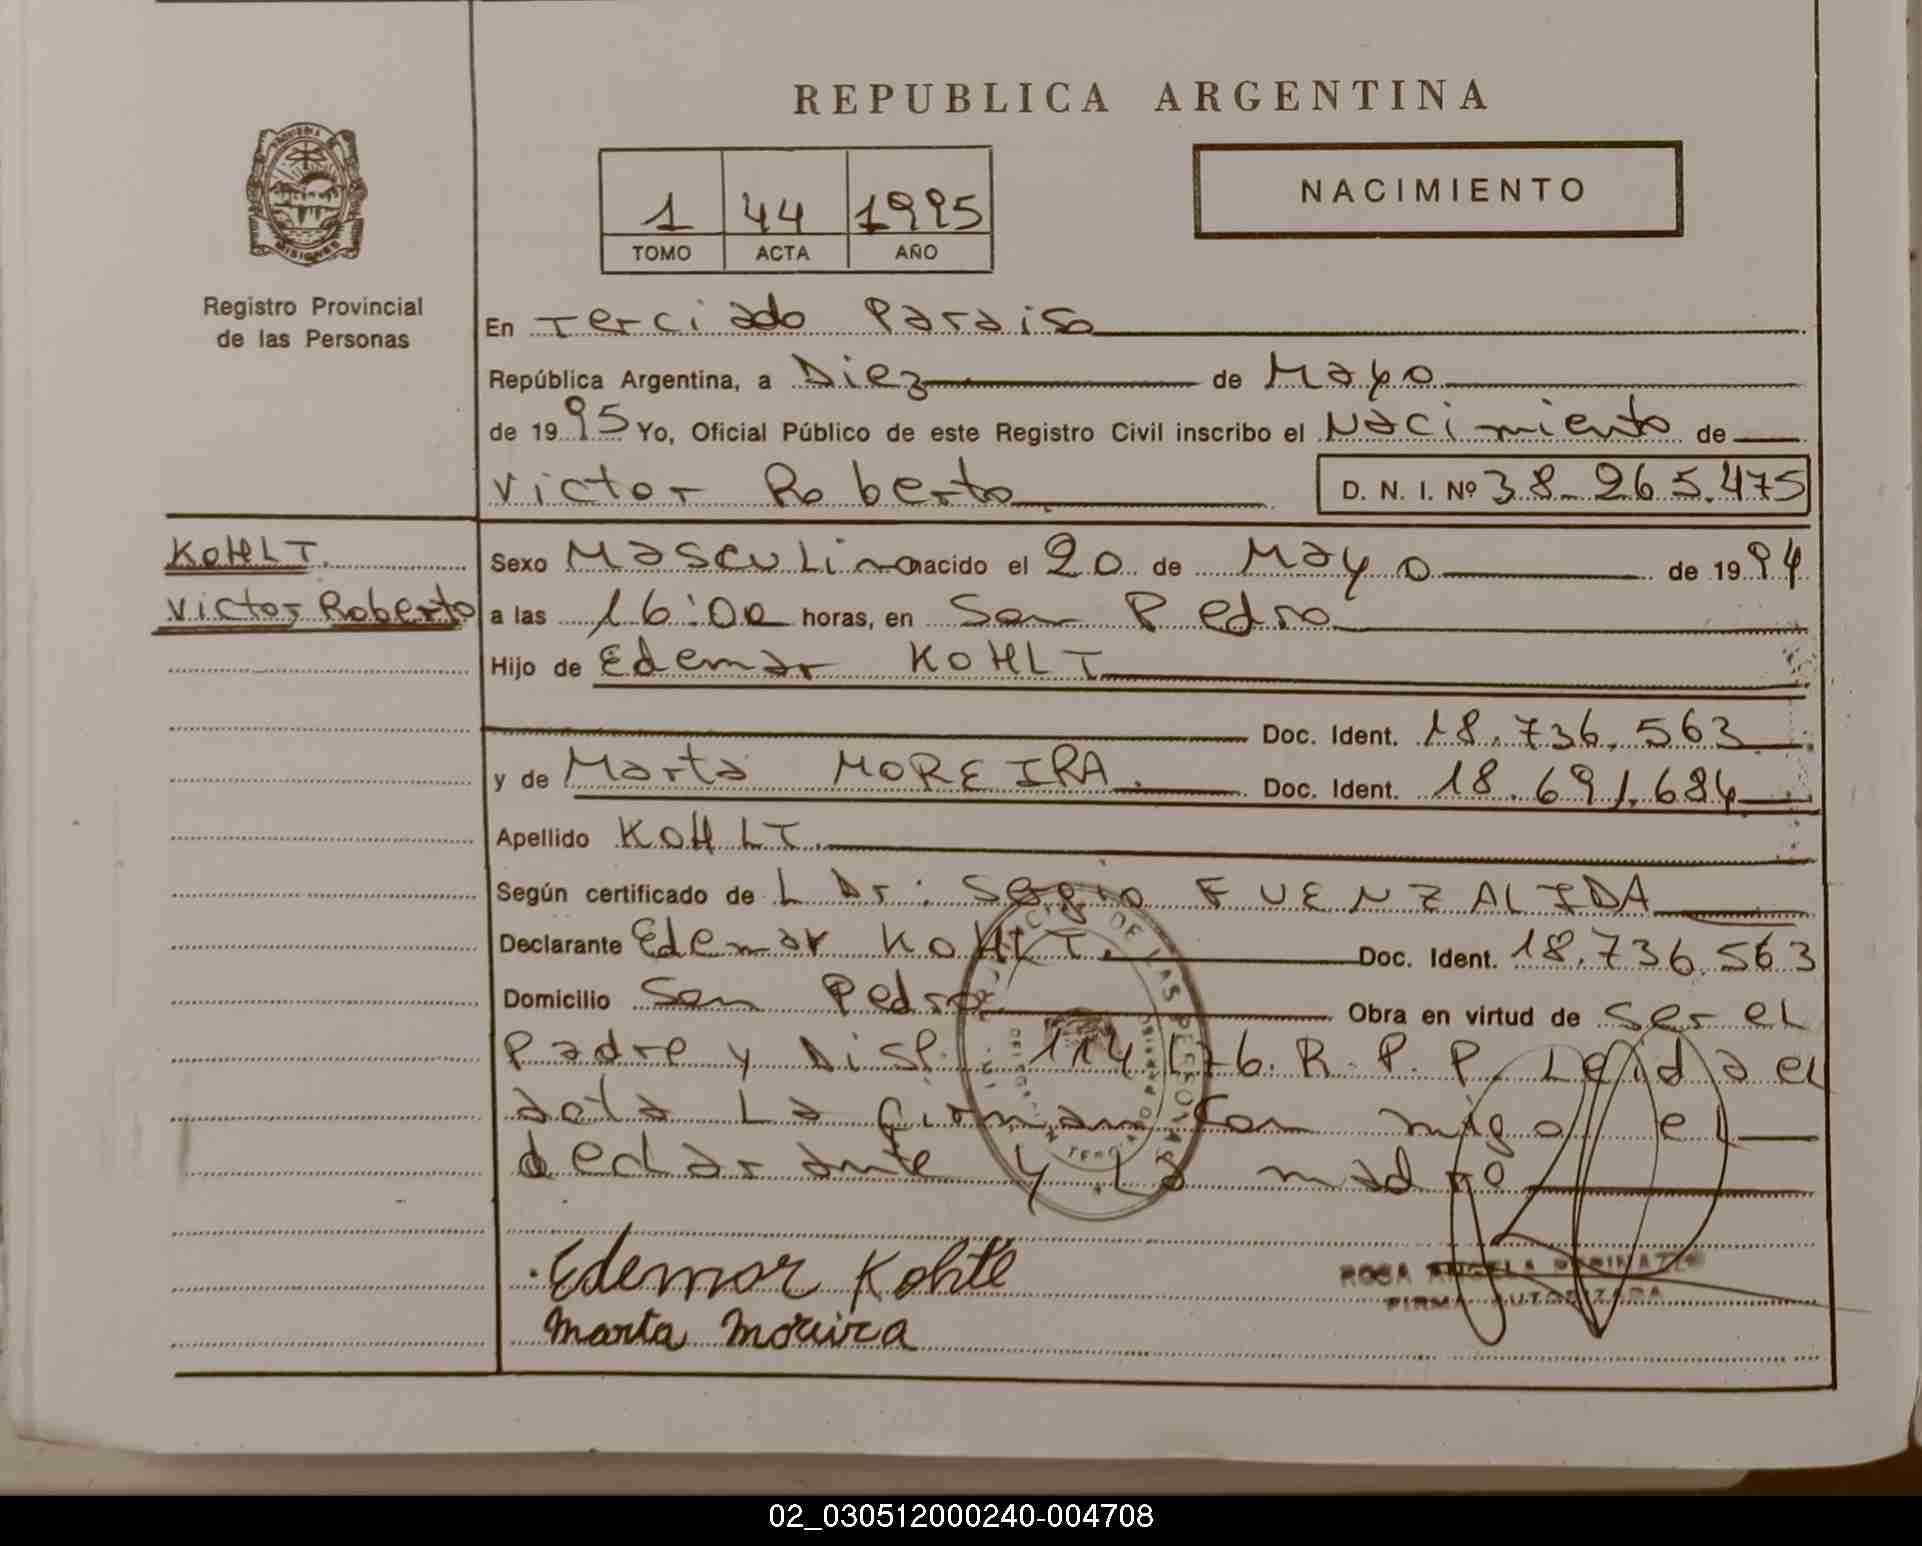 REPUBLICA ARGENTINA
NACIMIENTO
1 44 1995
TOMO ACTA AÑO
MISIONES
Registro Provincial
de las Personas
En Terciado Paraiso
República Argentina, a Diez de Mayo
de 1995 Yo, Oficial Público de este Registro Civil inscribo el Nacimiento de
Victor Roberto D. N. I. Nº 38.265.475
KOHLT.
Victor Roberto
Sexo Masculino nacido el 20 de Mayo de 1994
a las 16:00 horas, en San Pedro
Hijo de Edemar KOHLT
Doc. Ident. 18.736.563
y de Marta MOREIRA. Doc. Ident. 18.691.684
Apellido KOHLT.
Según certificado de L Dr: Sergio FUENZALIDA
Declarante Edemar KOHLT. Doc. Ident. 18.736.563
Domicilio San Pedro Obra en virtud de ser el
Padre y Disp. 114/76. R.P.P. Leida el
acta La firman con migo el
declarante y La madre
Edemar Kohlt
Marta Moreira
ROSA ANGELA
FIRMA AUTORIZADA
02_030512000240-004708